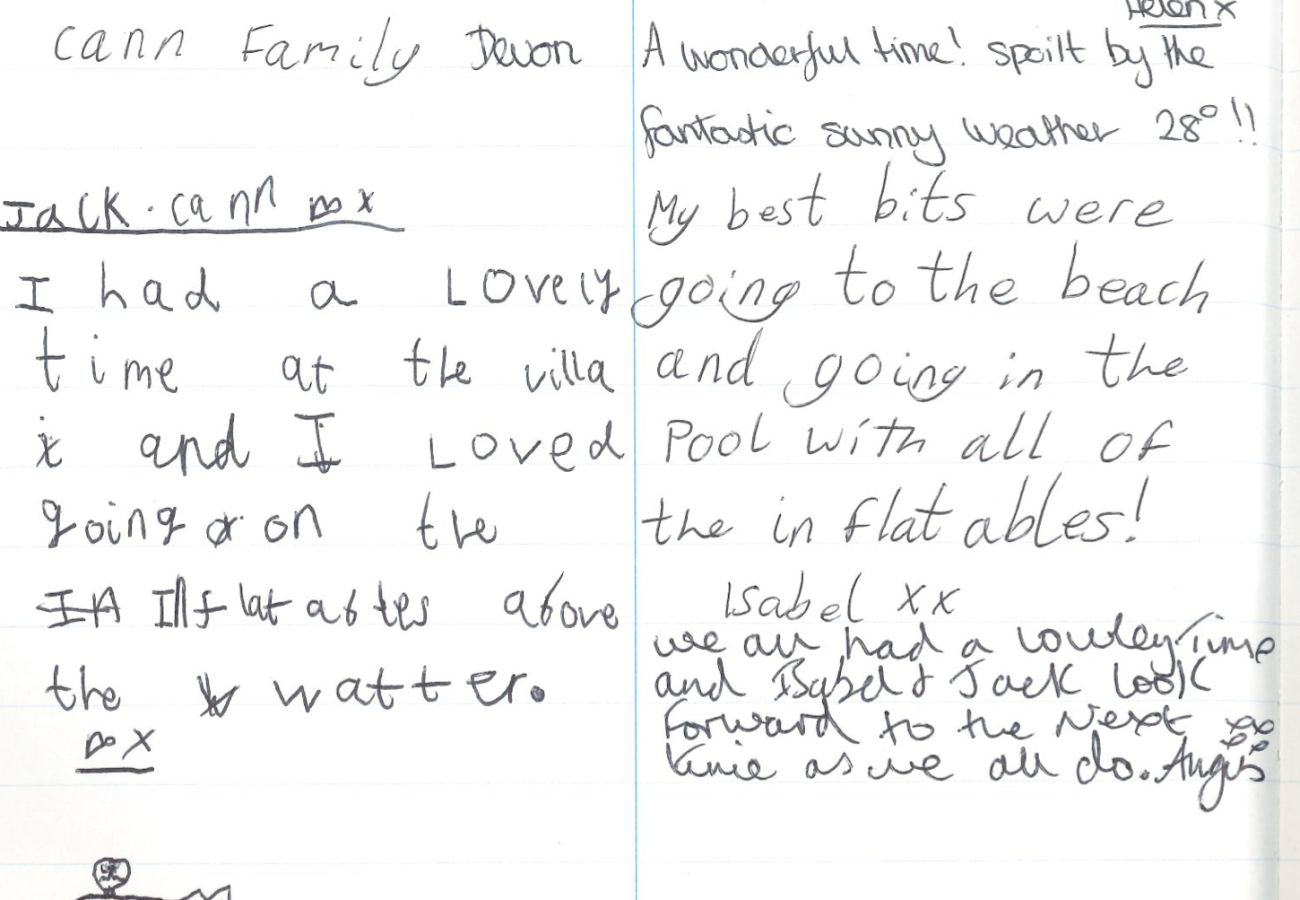 Cann Family Devon
Jack.cann x
I had a Lovely
time at the villa
x and I Loved
going on the
IA Inflatables above
the watter.
x
Helen x
A wonderful time! spoilt by the
fantastic sunny weather 28° !!
My best bits were
going to the beach
and going in the
Pool with all of
the in flat ables!
Isabel xx
we all had a lovley Time
and Isabel & Jack look
forward to the Next xx
time as we all do. Angus